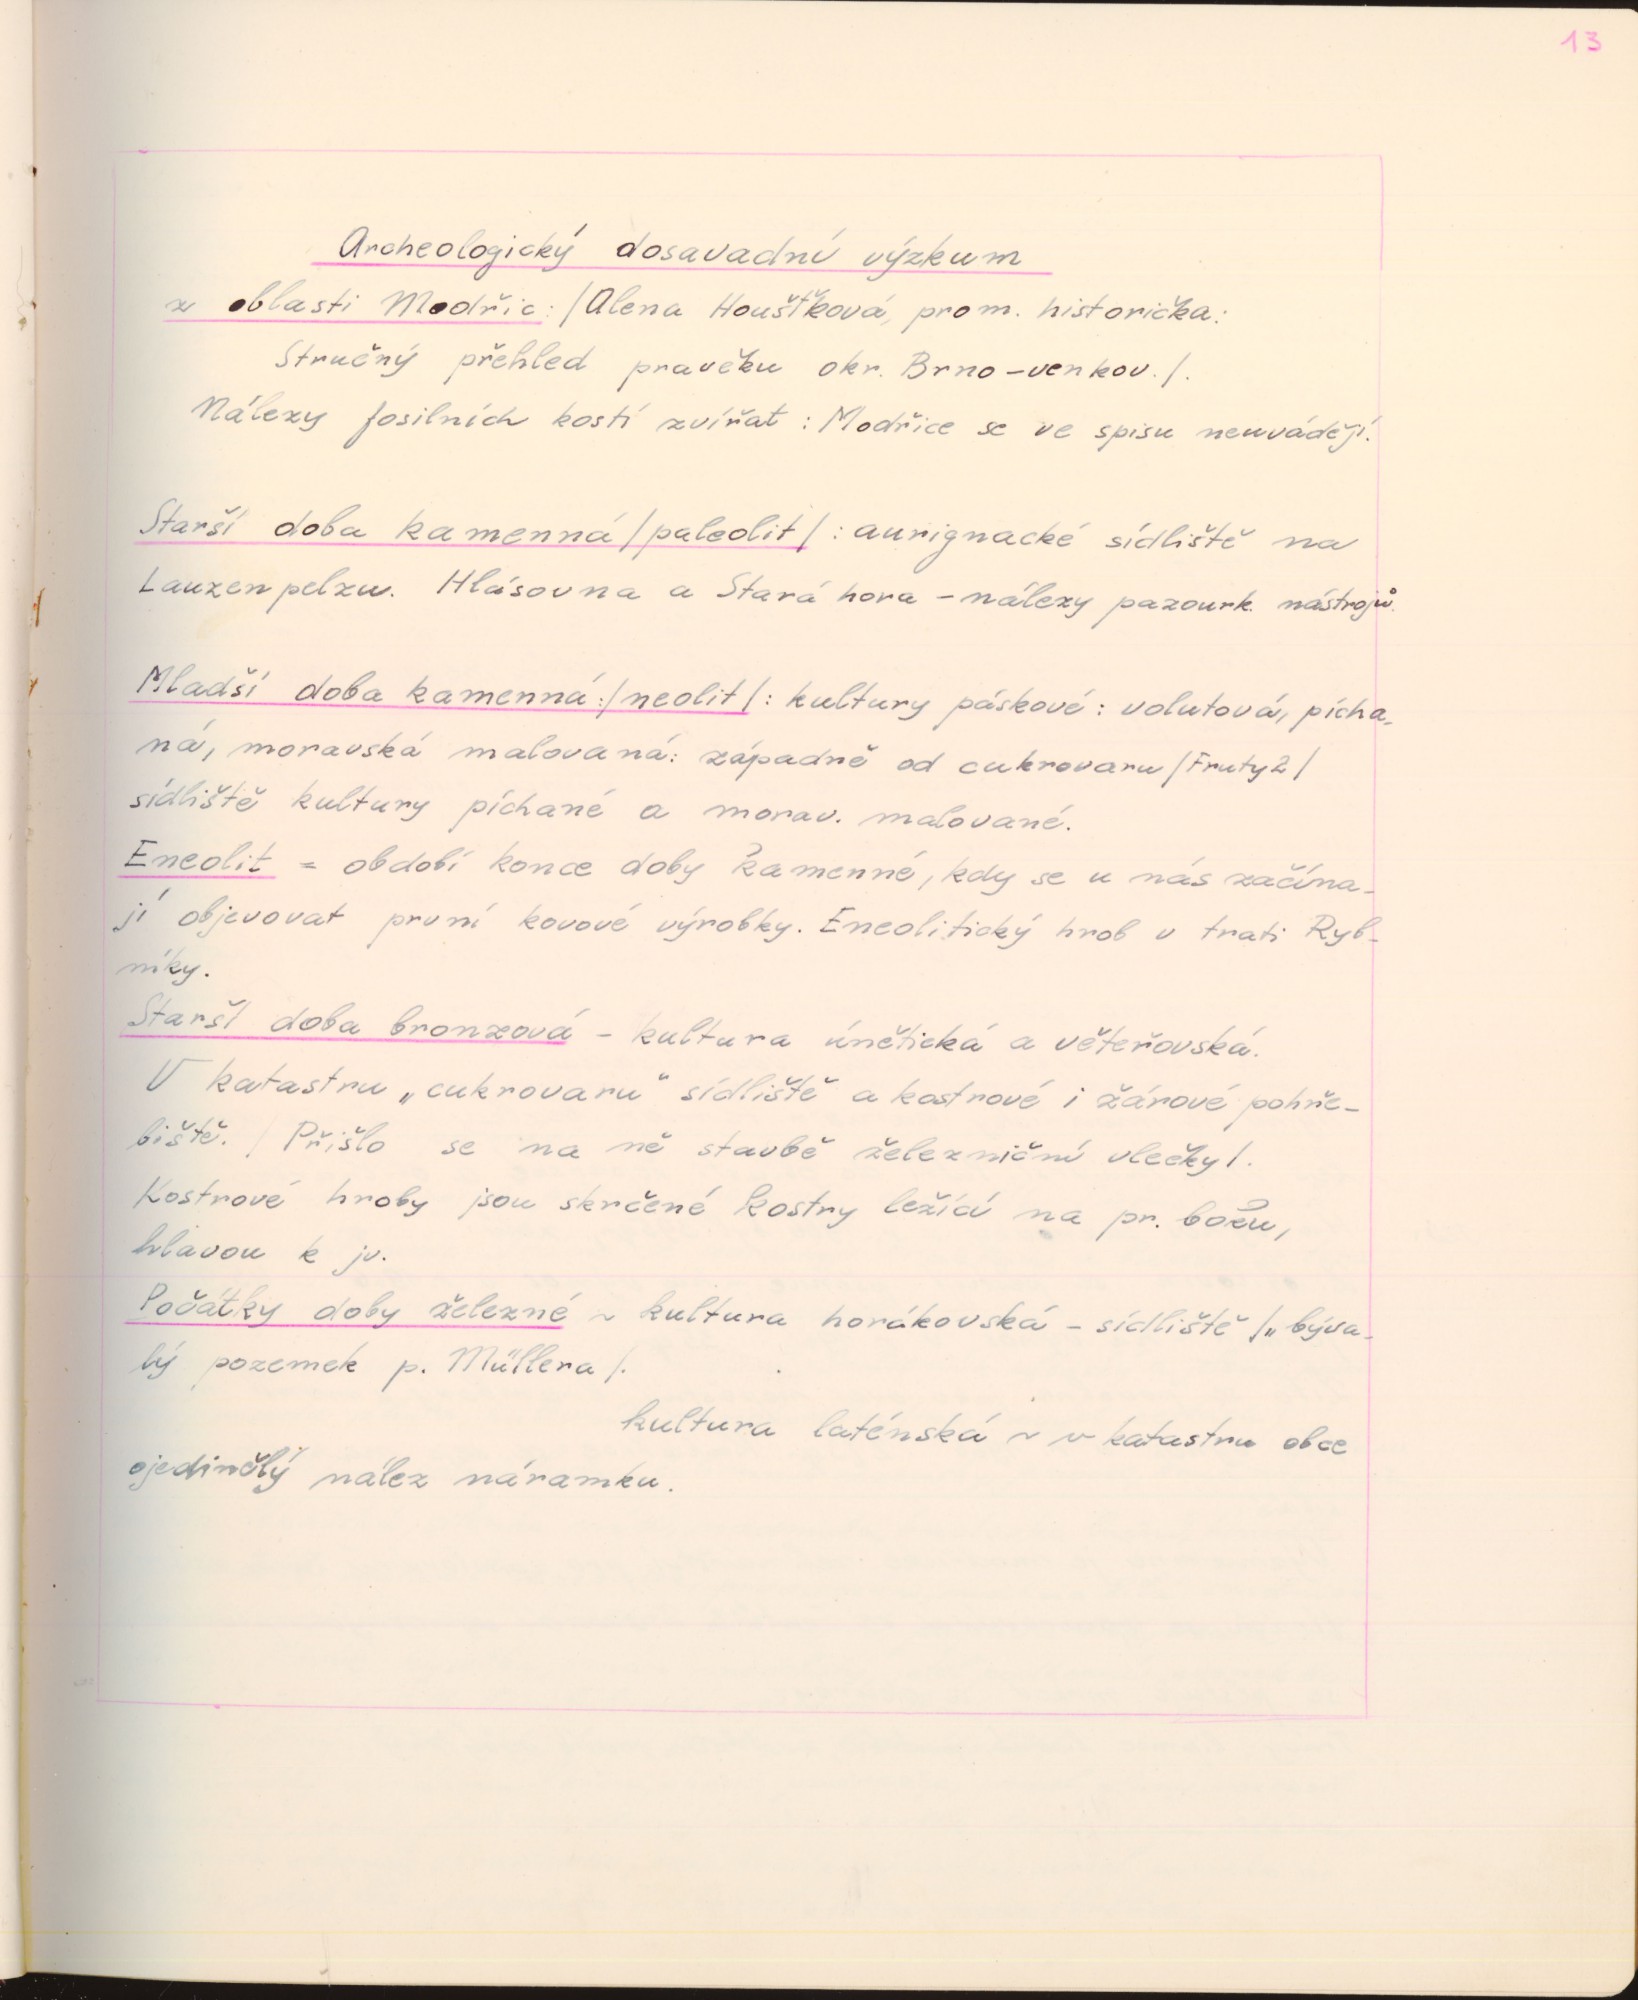 13
Archeologický dosavadní výzkum
z oblasti Modřic: /Alena Houšťková, prom. historička:
Stručný přehled pravěku okr. Brno-venkov./.
Nálezy fosilních kostí zvířat: Modřice se ve spisu neuvádějí.
Starší doba kamenná /paleolit/: aurignacké sídliště na
Lauzenpelzu. Hlásovna a Stará hora - nálezy pazourk. nástrojů.
Mladší doba kamenná:/neolit/: kultury páskové: volutová, pícha-
ná, moravská malovaná: západně od cukrovaru /Fruty 2/
sídliště kultury píchané a morav. malované.
Eneolit = období konce doby kamenné, kdy se u nás začína-
jí objevovat první kovové výrobky. Eneolitický hrob v trati Ryb-
níky.
Starší doba bronzová - kultura únětická a věteřovská.
V katastru „cukrovaru" sídliště a kostrové i žárové pohře-
biště. / Přišlo se na ně stavbě železniční vlečky/.
Kostrové hroby jsou skrčené kostry ležící na pr. boku,
hlavou k jv.
Počátky doby železné ~ kultura horákovská - sídliště /„býva-
lý pozemek p. Müllera/.
kultura laténská ~ v katastru obce
ojedinělý nález náramku.